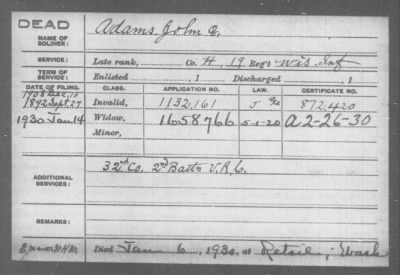 DEAD
NAME OF SOLDIER: Adams, John Q.
SERVICE: Late rank, Co. H, 19 Reg't Wis. Inf
TERM OF SERVICE: Enlisted , 1 Discharged , 1
DATE OF FILING. CLASS. APPLICATION NO. LAW. CERTIFICATE NO.
1908 Dec, 10
1892 Sept. 27 Invalid, 1132,161 872,420
1930 Jan 14 Widow, 1658766 5-1-20 A 2-26-30
Minor,
ADDITIONAL SERVICES: 32nd Co. 2nd Batt. V.R.C.
REMARKS:
Died Jan 6, 1930, at Retsil, Wash